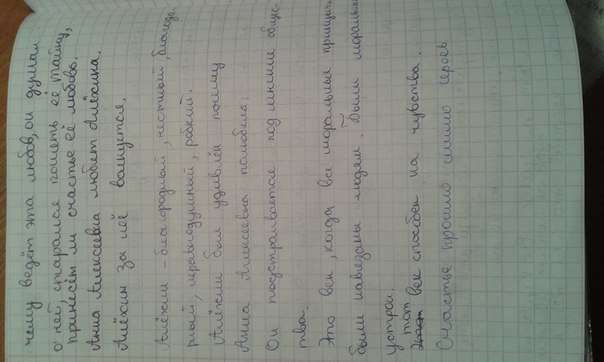 чему ведёт эта любовь, он думал
о ней, старался понять её тайну,
принесёт ли счастье её любовь.
Анна Алексеевна любит Алёхина.
Алёхин за ней волнуется.
Алёхин - благородный, честный, благода
рный, неравнодушный, робкий.
Алёхин был удивлён почему
Анна Алексеевна полюбила.
Он подстраивается под мнение общес
тва.
Это век, когда все моральные принципы
были навязаны людям. Были моральные
устрои.
этот век способен на чувства.
Счастье прошло мимо героев